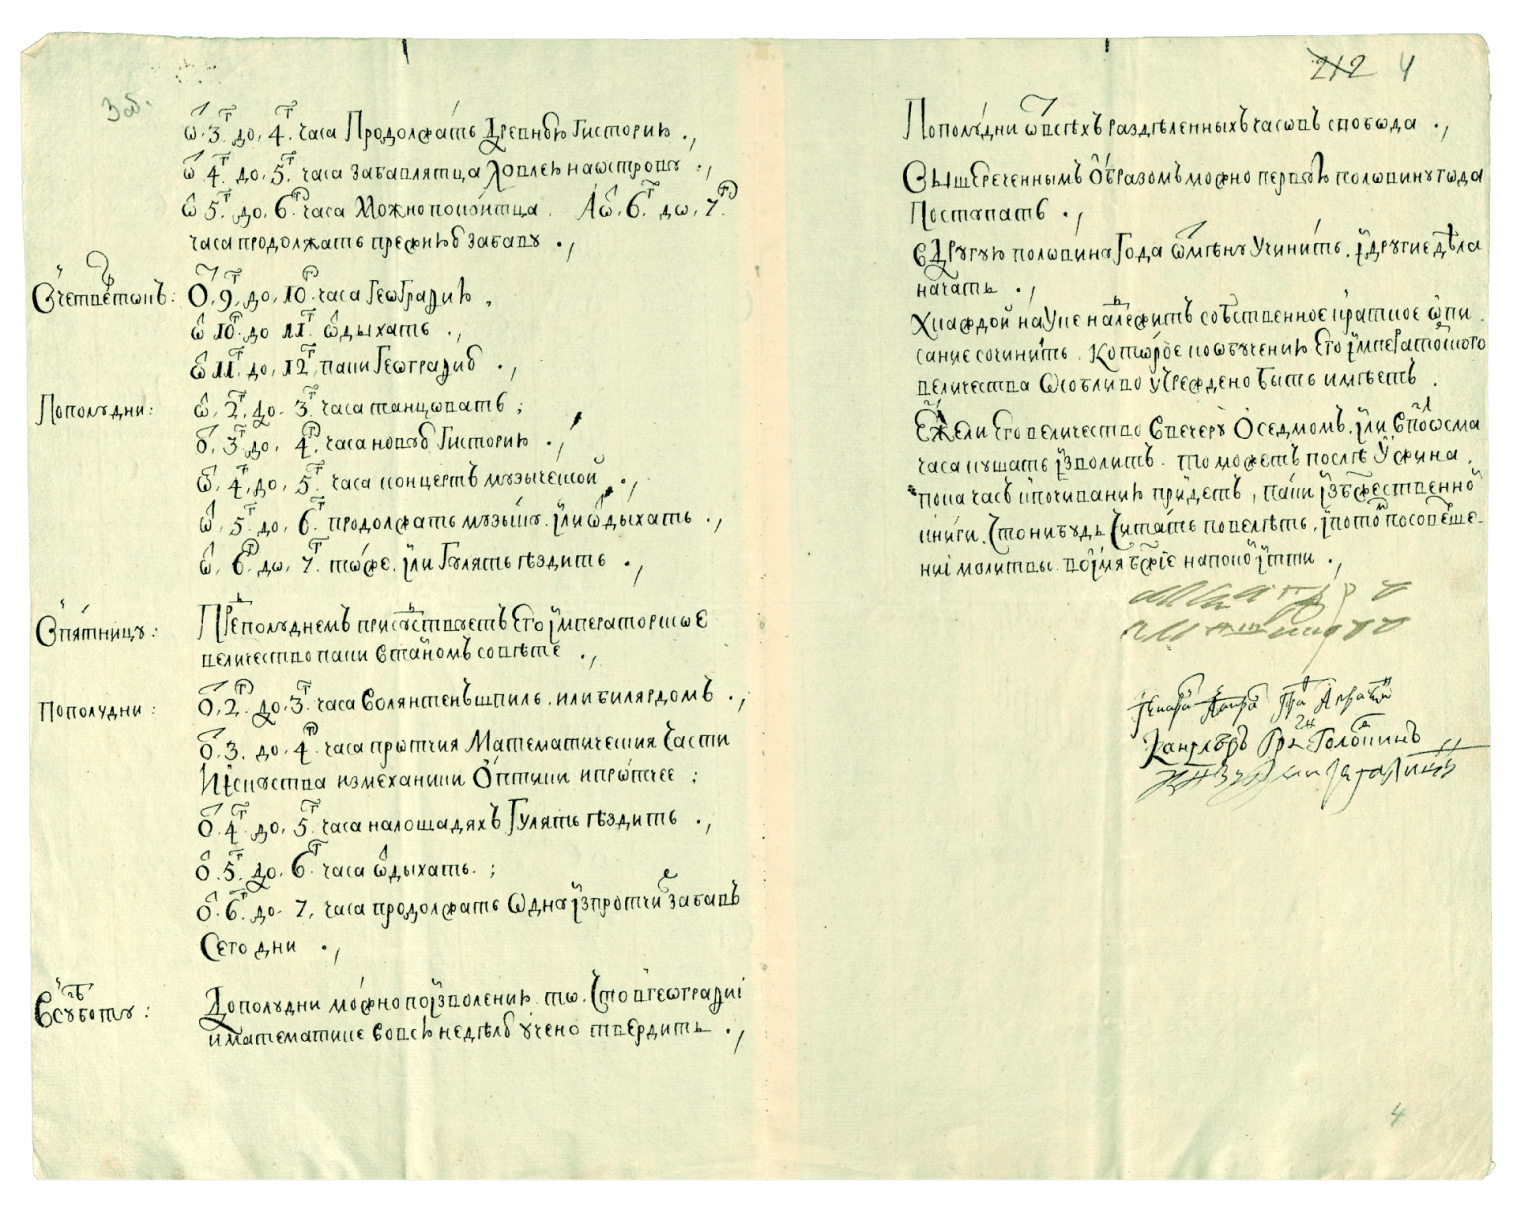 3 об.
ѿ 3г до 4г часа Продолжать Древнюю Гисторию .,
ѿ 4г до 5г часа забавлятца ловлею наωстрову .,
ѿ 5г до 6г часа Можно покоитца. А ѿ 6г до 7г
часа продолжать прежнюю забаву .,
В четвертокъ: Ѿ 9г до 10г часа Геωграфию .
ѿ 10г до 11г ѿдыхать .,
ѿ 11г до 12г паки Геωграфию .,
Пополудни: ѿ 2г до 3г часа танцовать ;
ѿ 3г до 4г часа новую Гисторию .,
ѿ 4г до 5г часа концертъ музыческой .,
ѿ 5г до 6г продолжать музыку. или ѿдыхать .,
ѿ 6г до 7г тоже. или Гулять ѣздить .,
В пятницу: Предполуднемъ присутствуетъ Его императорское
величество паки в тайномъ совѣте .,
Пополудни: Ѿ 2г до 3г часа Волянтенъшпиль. или билярдомъ .,
Ѿ 3. до 4г часа протчия Математическия части
Искуства из механики Оптики и протчее ;
Ѿ 4г до 5г часа на лошадяхъ Гулять ѣздить .,
Ѿ 5г до 6г часа ѿдыхать. ;
Ѿ 6г до 7, часа продолжать ωдна из протчих забавъ
Сего дни .,
В субботу: Дополудни можно по изволению. то. что в геωграфиі
и математике вовсю неделю учено твердить .,
212 4
Пополудни ѿ всѣхъ раздѣленныхъ часовъ свобода .,
Вышереченнымъ Образомъ можно первую половину года
Поступать .,
В Другую половину Года ѿмѣну Учинить. и другие дѣла
начать .,
Х каждой науке надлежитъ собственное краткое ωпи
сание сочинить. которое к ωбучению Его императорского
величества ωсобливо учреждено быть имѣетъ .
Ежели Его величество Ввечеру О седмомъ. или в ωсмом
часа кушать изволитъ. то можетъ послѣ Ужина,
пока часъ к почиванию придетъ, паки из божественной
книги. Что нибудь Читать повелѣть, и потом по совѣрше-
ниі молитвы. во имя божіе на покой итти .,
Канцлеръ Граф Головкинъ
4